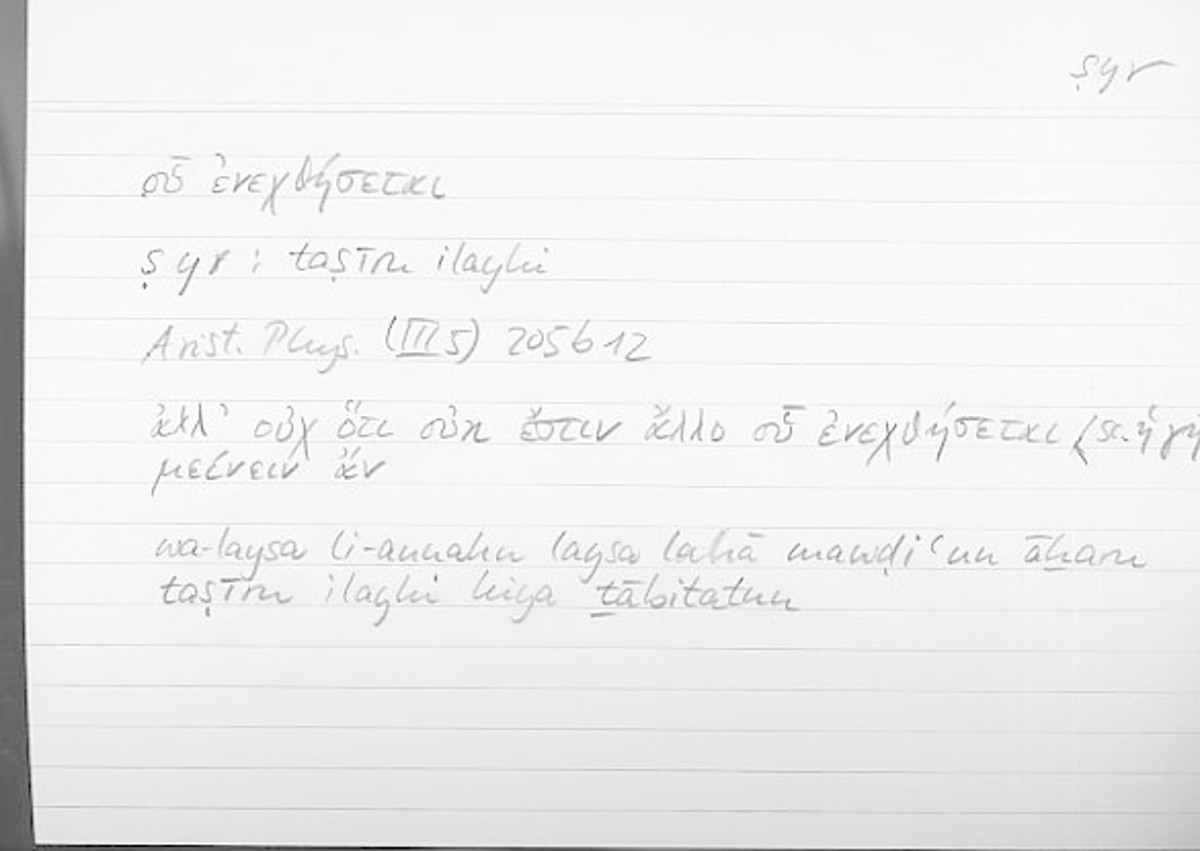 ṣyr
οὗ ἐνεχθήσεται
ṣyr : taṣīru ilayhi
Arist. Phys. (III 5) 205b12
ἀλλ' οὐχ ὅτι οὐκ ἔστιν ἄλλο οὗ ἐνεχθήσεται (sc. ἡ γῆ
μείνειν ἄν
wa-laysa li-annahu laysa lahā mawḍiʿun āḫaru
taṣīru ilayhi hiya ṯābitatun